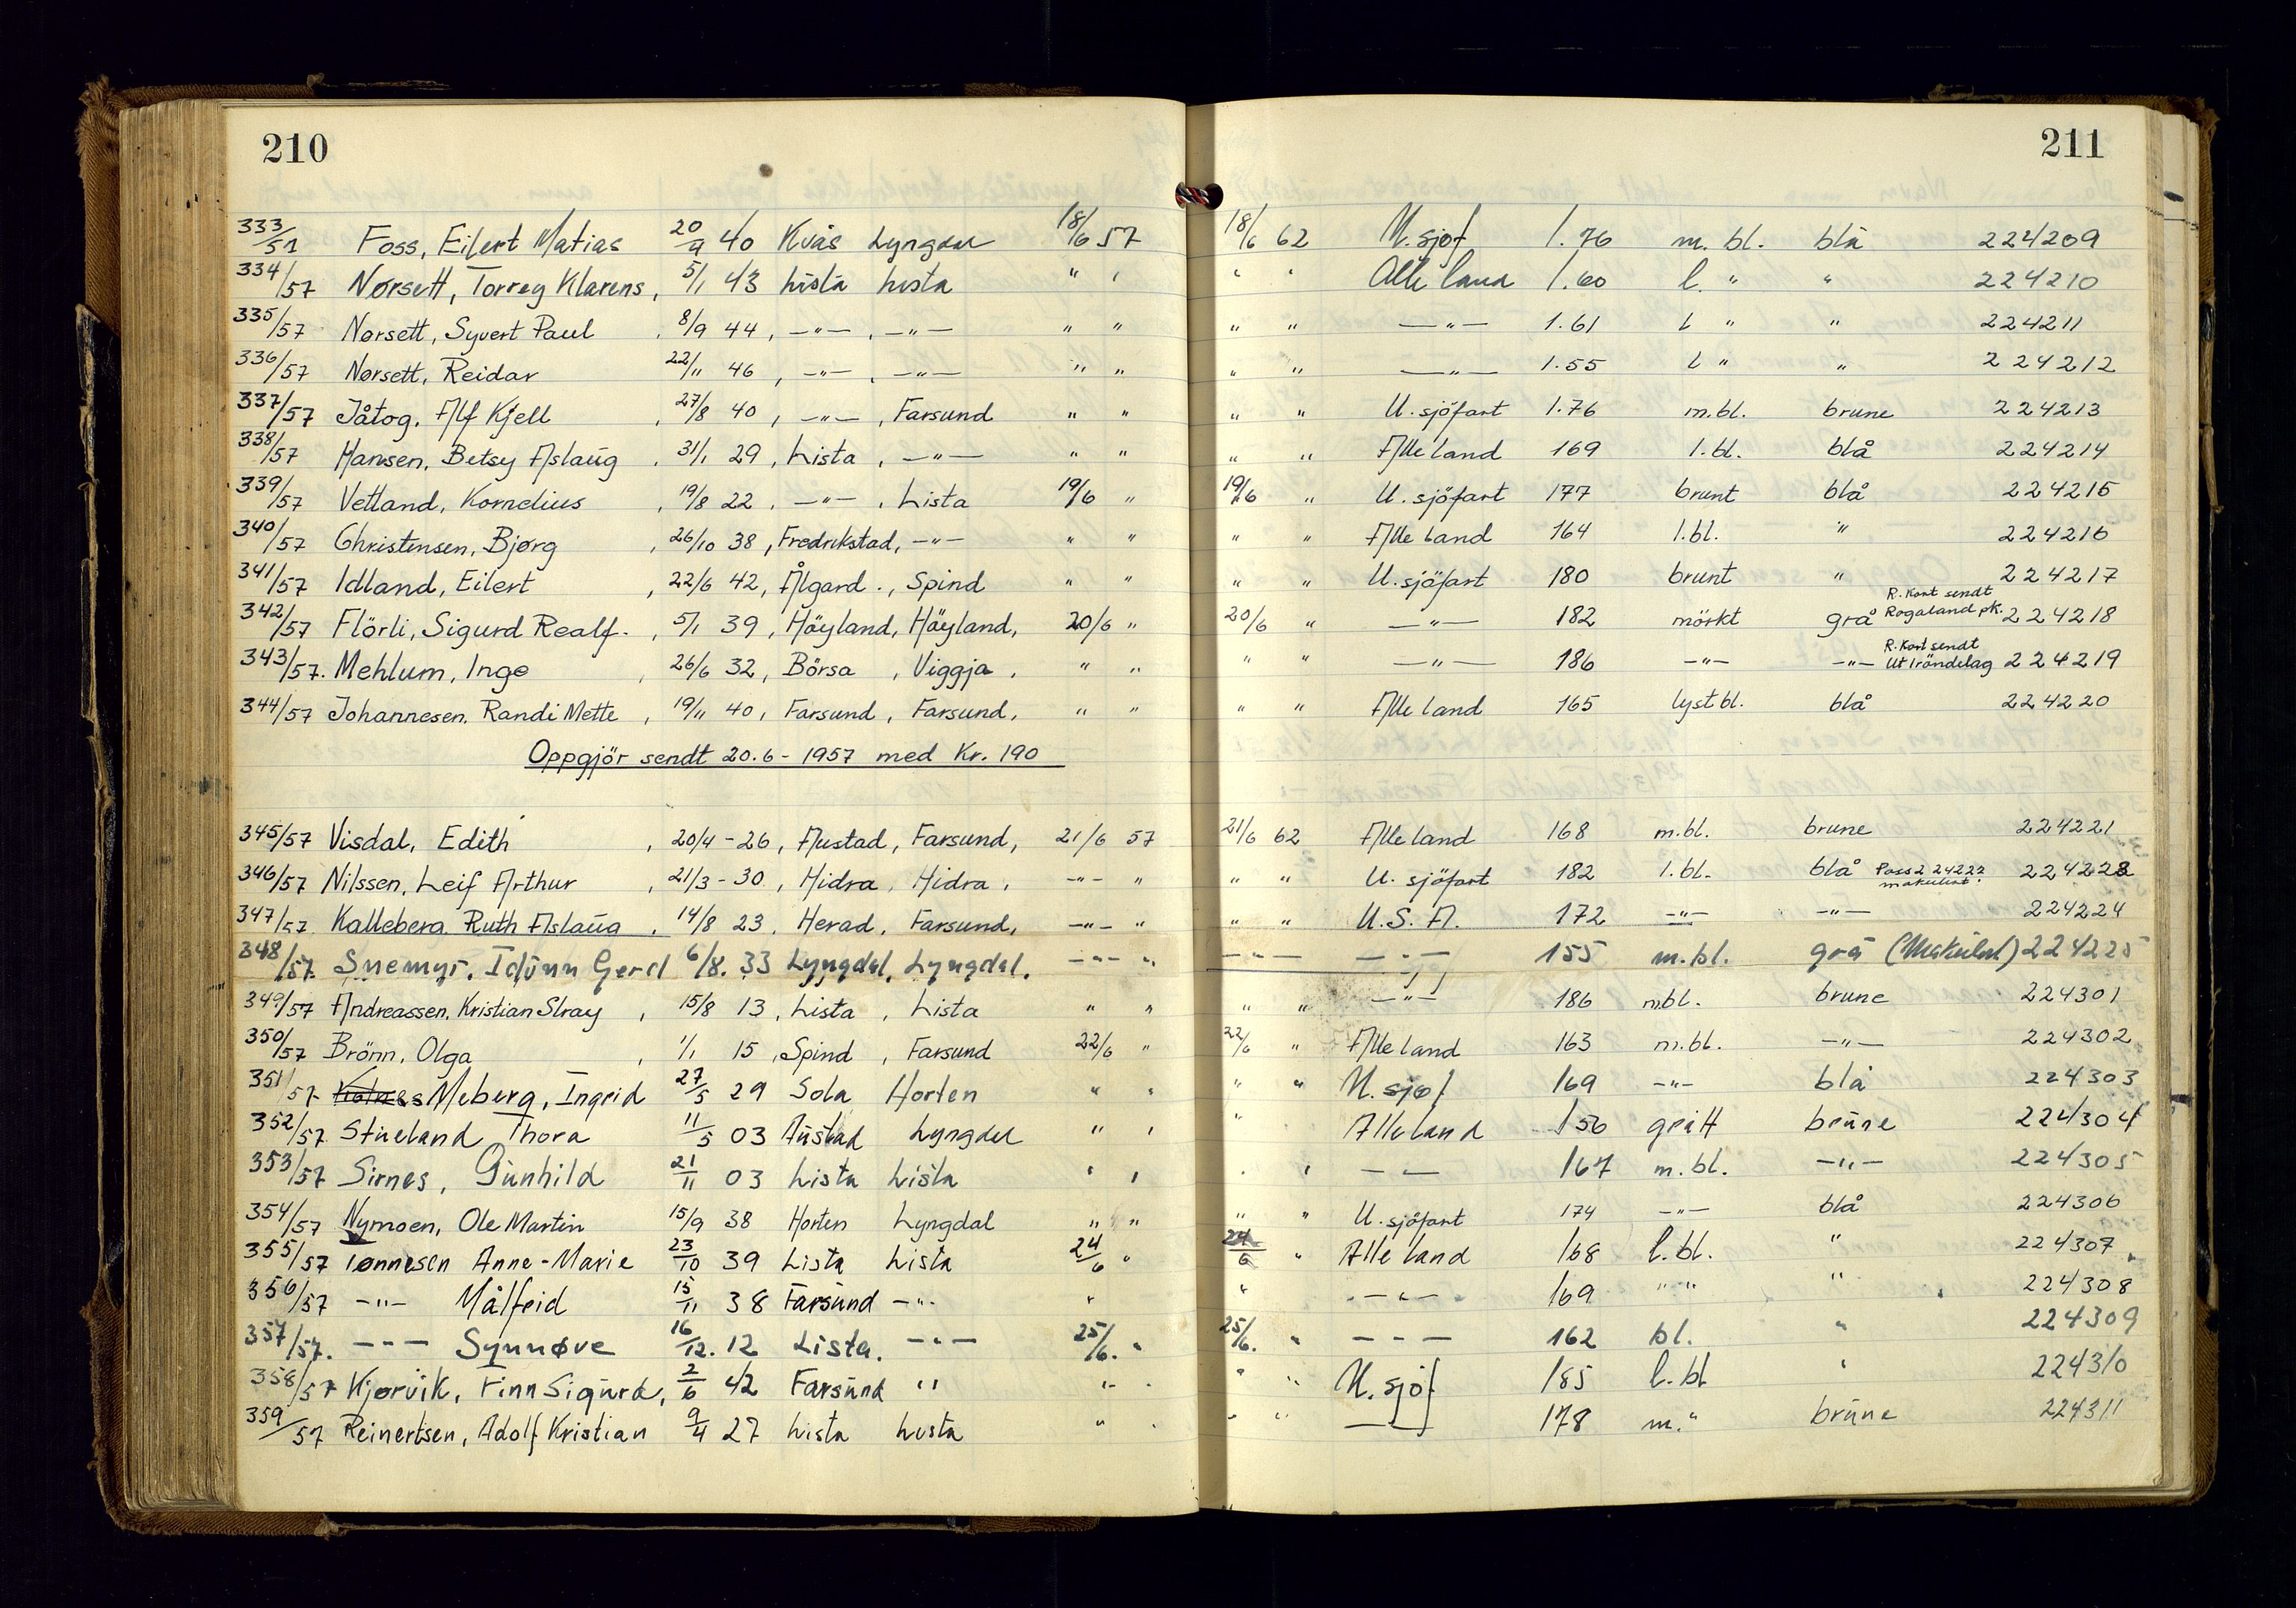 210
333/57 Foss, Eilert Matias 20/9 40 Kvås Lyngdal 18/6 57
334/57 Nørsett, Torrey Klarens, 5/1 43 Lista Lista " "
335/57 Nørsett, Syvert Paul , 8/9 44, —"— , —"— " "
336/57 Nørsett, Reidar 22/11 46 , —"— , —"— " "
337/57 Jåtog, Alf Kjell , 27/8 40 , —"— , Farsund " "
338/57 Hansen, Betsy Aslaug , 31/1 29 , Lista , —"— " "
339/57 Vetland, Kornelius , 19/8 22 , —"— , Lista 19/6 "
340/57 Christensen, Bjørg , 26/10 38 , Fredrikstad, —"— " "
341/57 Idland, Eilert , 22/6 42, Ålgard ., Spind " "
342/57 Flörli, Sigurd Realf. , 5/1 39 , Höyland, Höyland, 20/6 "
343/57. Mehlum, Inge , 26/6 32, Börsa , Viggja , " "
344/57 Johannesen, Randi Mette , 19/11 40, Farsund, Farsund, " "
Oppgjör sendt 20.6 - 1957 med Kr. 190
345/57 Visdal, Edith , 20/4 - 26, Austad, Farsund, 21/6 57
346/57 Nilssen, Leif Arthur , 21/3 - 30 , Hidra , Hidra , —"— "
347/57 Kalleberg Ruth Aslaug , 14/8 23 , Herad, Farsund, —"— "
348/57. Snemyr, Idunn Gerd 6/8. 33 Lyngdal, Lyngdal. —"— "
349/57 Andreassen, Kristian Stray , 15/8 13 , Lista , Lista " "
350/57 Brönn, Olga , 1/1 15 , Spind , Farsund 22/6 "
351/57 Meberg, Ingrid 27/5 29 Sola Horten " "
352/57 Stueland Thora 11/5 03 Austad Lyngdal " "
353/57 Sirnes, Gunhild 21/11 03 Lista Lista " "
354/57 Nymoen, Ole Martin 15/9 38 Horten Lyngdal " "
355/57 Tønnesen Anne-Marie 23/10 39 Lista Lista 24/6 "
356/57 —"— Målfrid 15/11 38 Farsund —"— "
357/57. —"— Synnøve 16/12. 12 Lista. —"— 25/6. "
358/57 Kjørvik, Finn Sigurd, 2/6 42 Farsund " " "
359/57 Reinertsen, Adolf Kristian 9/4 27 Lista Lista " "
211
18/6 62 U.sjøf 1.76 m. bl. blå 224209
" " Alle land 1.60 l. " " 224210
" " —"— 1.61 l " " 224211
" " —"— 1.55 l " " 224212
" " U.sjöfart 1.76 m.bl. brune 224213
" " Alle land 169 l.bl. blå 224214
19/6 " U.sjöfart 177 brunt blå 224215
" " Alle land 164 l.bl. " 224216
" " U.sjöfart 180 brunt " 224217
20/6 " —"— 182 mörkt grå R. Kort sendt Rogaland pk. 224218
" " —"— 186 —"— —"— R. Kort sendt Utröndelag 224219
" " Alle land 165 lyst bl. blå 224220
21/6 62 Alle land 168 m.bl. brune 224221
" " U. sjöfart 182 l.bl. blå Pass 224222 makulert. 224223
" " U.S.A. 172 —"— —"— 224224
—"— —"— 155 m.bl. grå (Makulert) 224225
" " —"— 186 mbl. brune 224301
22/6 " Alle land 163 m.bl. —"— 224302
" " U.sjøf 169 —"— blå 224303
" Alle land 156 grått brune 224304
" " — — 167 m.bl. —"— 224305
" " U.sjöfart 174 —"— blå 224306
24/6 " Alle land 168 l.bl. " 224307
" —"— 169 " " " 224308
25/6. " — — — 162 bl. " 224309
" " U.sjøf 185 l.bl " 224310
" " — 178 m." brune 224311